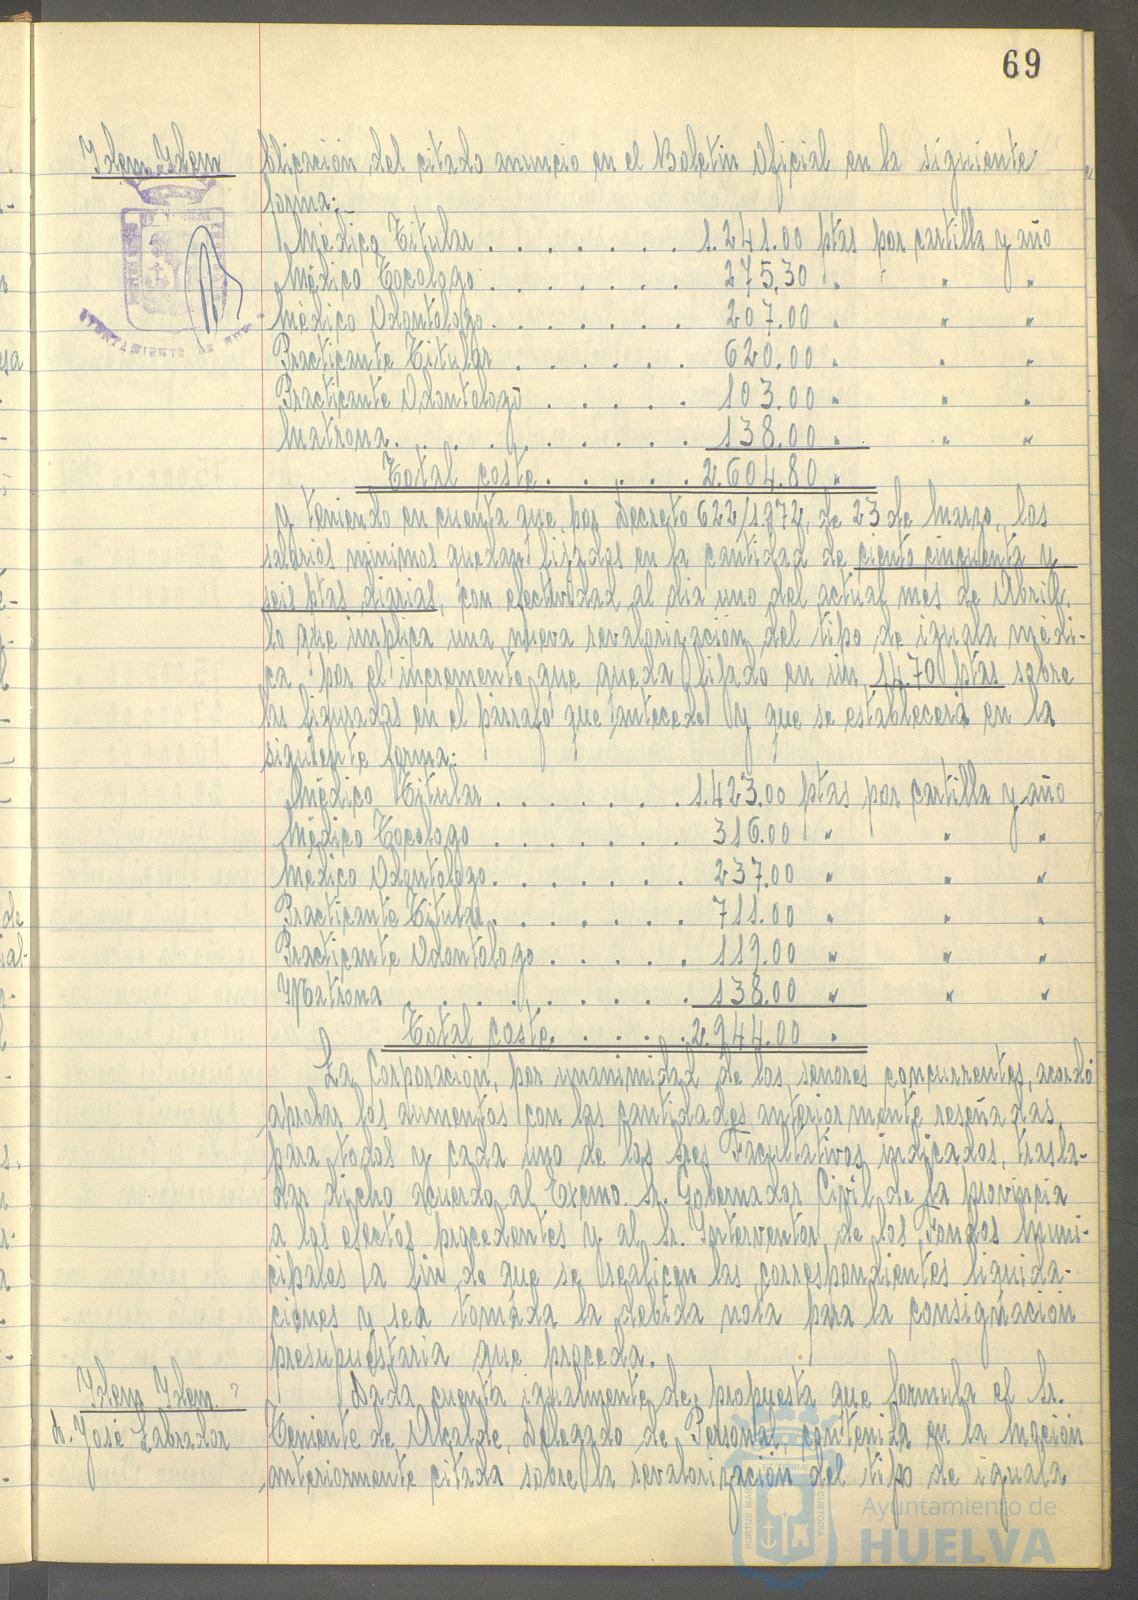 69
Idem Idem
blicación del citado anuncio en el Boletin Oficial en la siguiente
forma:
Médico Titular . . . . . . . 1.241.00 ptas por cartilla y año
Médico Tocologo . . . . . . . 275,30 " " " "
Médico Odontólogo . . . . . . . 207.00 " " "
Practicante Titular . . . . . . 620.00 " " "
Practicante Odontologo . . . . . 103.00 " " "
Matrona . . . . . . . . . 138.00 " " "
Total coste . . . . . 2.604.80 "
y teniendo en cuenta que por Decreto 622/1972, de 23 de Marzo, los
salarios minimos quedan fijados en la cantidad de ciento cincuenta y
seis ptas diarias, con efectividad al dia uno del actual mes de Abril.
lo que implica una nueva revalorización del tipo de iguala médi-
ca por el incremento que queda fijado en un 14.70 ptas sobre
las figuradas en el párrafo que antecede y que se establecerá en la
siguiente forma:
Médico Titular . . . . . . . 1.423.00 ptas por cartilla y año
Médico Tocologo . . . . . . . 316.00 " " "
Médico Odontólogo . . . . . . . 237.00 " " "
Practicante Titular . . . . . . 711.00 " " "
Practicante Odontólogo . . . . . 119.00 " " "
Matrona . . . . . . . . 138.00 " " "
Total coste . . . . . 2.944.00 "
La Corporación, por unanimidad de los señores concurrentes, acordó
aprobar los aumentos con las cantidades anteriormente reseñadas
para todos y cada uno de los Sres Facultativos indicados, trasla-
dar dicho acuerdo al Excmo. Sr. Gobernador Civil de la provincia
a los efectos procedentes y al Sr. Interventor de los Fondos Muni-
cipales a fin de que se realicen las correspondientes liquida-
ciones y sea tomada la debida nota para la consignación
presupuestaria que proceda.
Idem Idem.
D. José Labrador
Dada cuenta igualmente de propuesta que formula el Sr.
Teniente de Alcalde, Delegado de Personal, contenida en la Moción
anteriormente citada sobre la revalorización del tipo de iguala
AYUNTAMIENTO DE
PORTUS MARIS
CUSTODIA
Ayuntamiento de
HUELVA